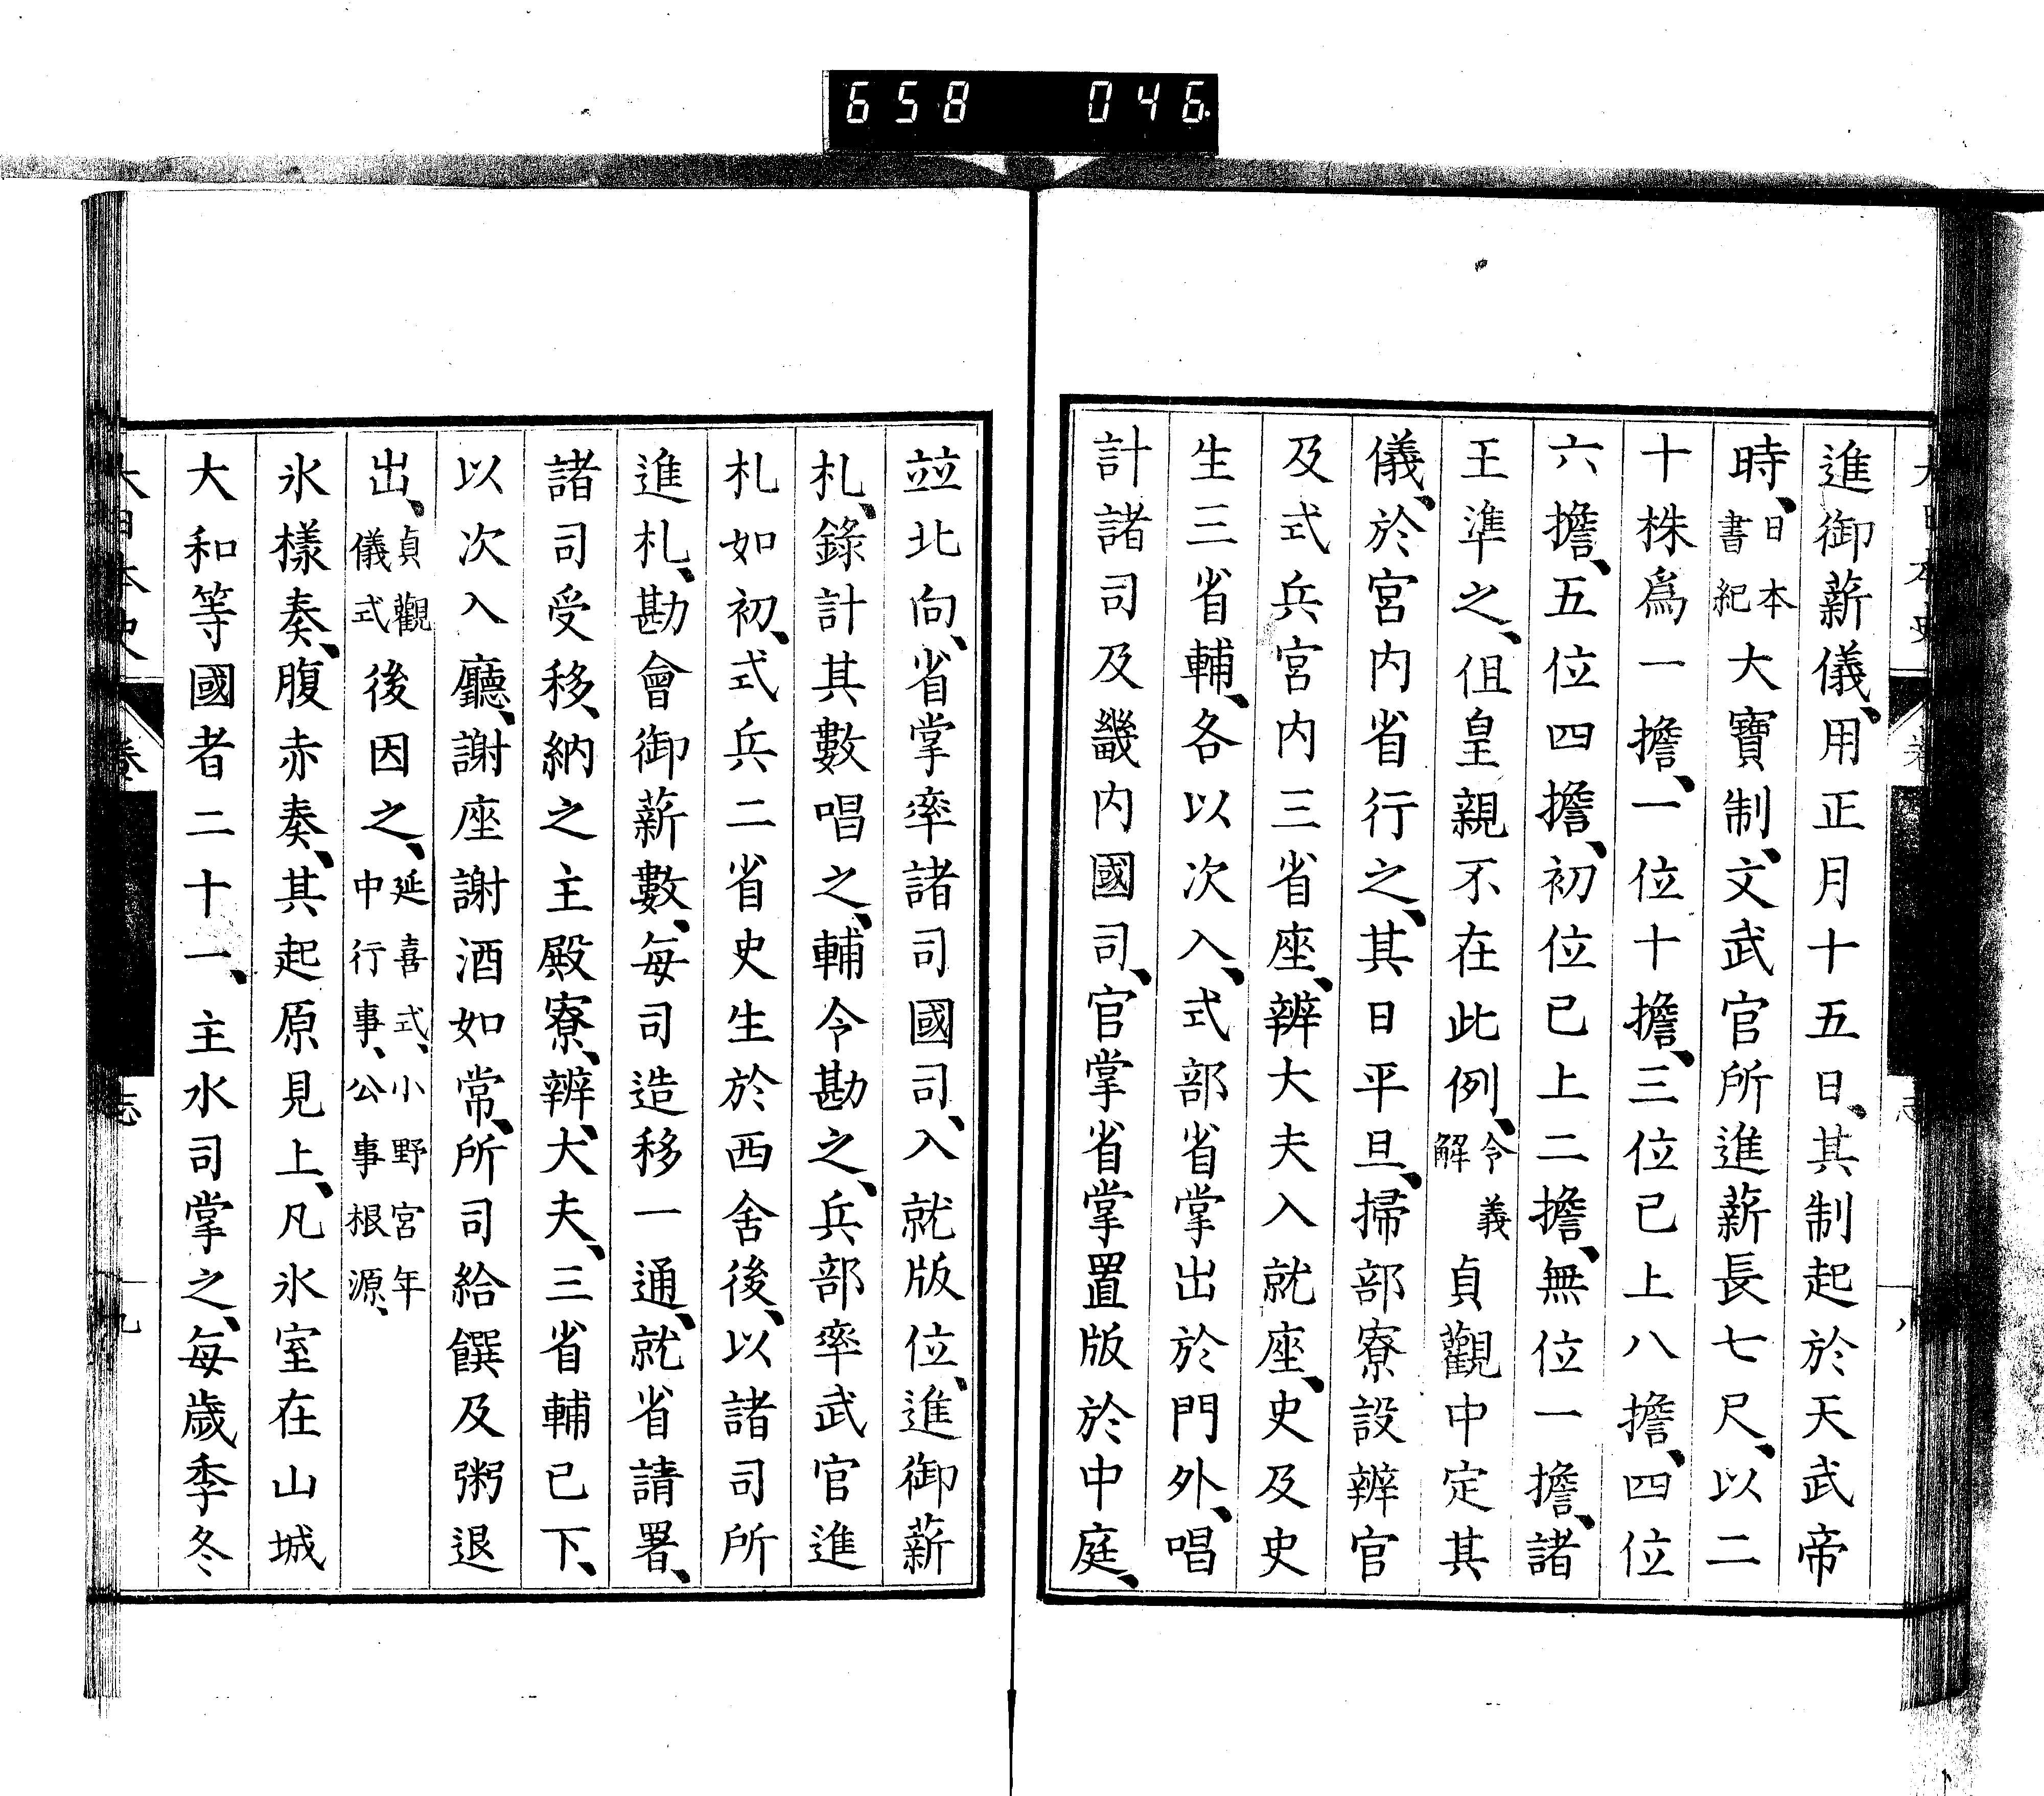 658 046
進御薪儀、用正月十五日、其制起於天武帝
時、日本書紀大寶制、文武官所進薪長七尺、以二
十株爲一擔、一位十擔、三位已上八擔、四位
六擔、五位四擔、初位已上二擔、無位一擔、諸
王準之、但皇親不在此例、令義解貞觀中定其
儀、於宮内省行之、其日平旦、掃部寮設辨官
及式兵宮内三省座、辨大夫入就座、史及史
生三省輔、各以次入、式部省掌出於門外、唱
計諸司及畿内國司、官掌省掌置版於中庭、
竝北向、省掌率諸司國司、入就版位、進御薪
札、錄計其數唱之、輔令勘之、兵部率武官進
札如初、式兵二省史生於西舍後、以諸司所
進札、勘會御薪數、每司造移一通、就省請署、
諸司受移、納之主殿寮、辨、大夫、三省輔已下、
以次入廳、謝座謝酒如常、所司給饌及粥退
出、貞觀儀式後因之、延喜式、小野宮年中行事、公事根源、
氷樣奏、腹赤奏、其起原見上、凡氷室在山城
大和等國者二十一、主水司掌之、每歲季冬